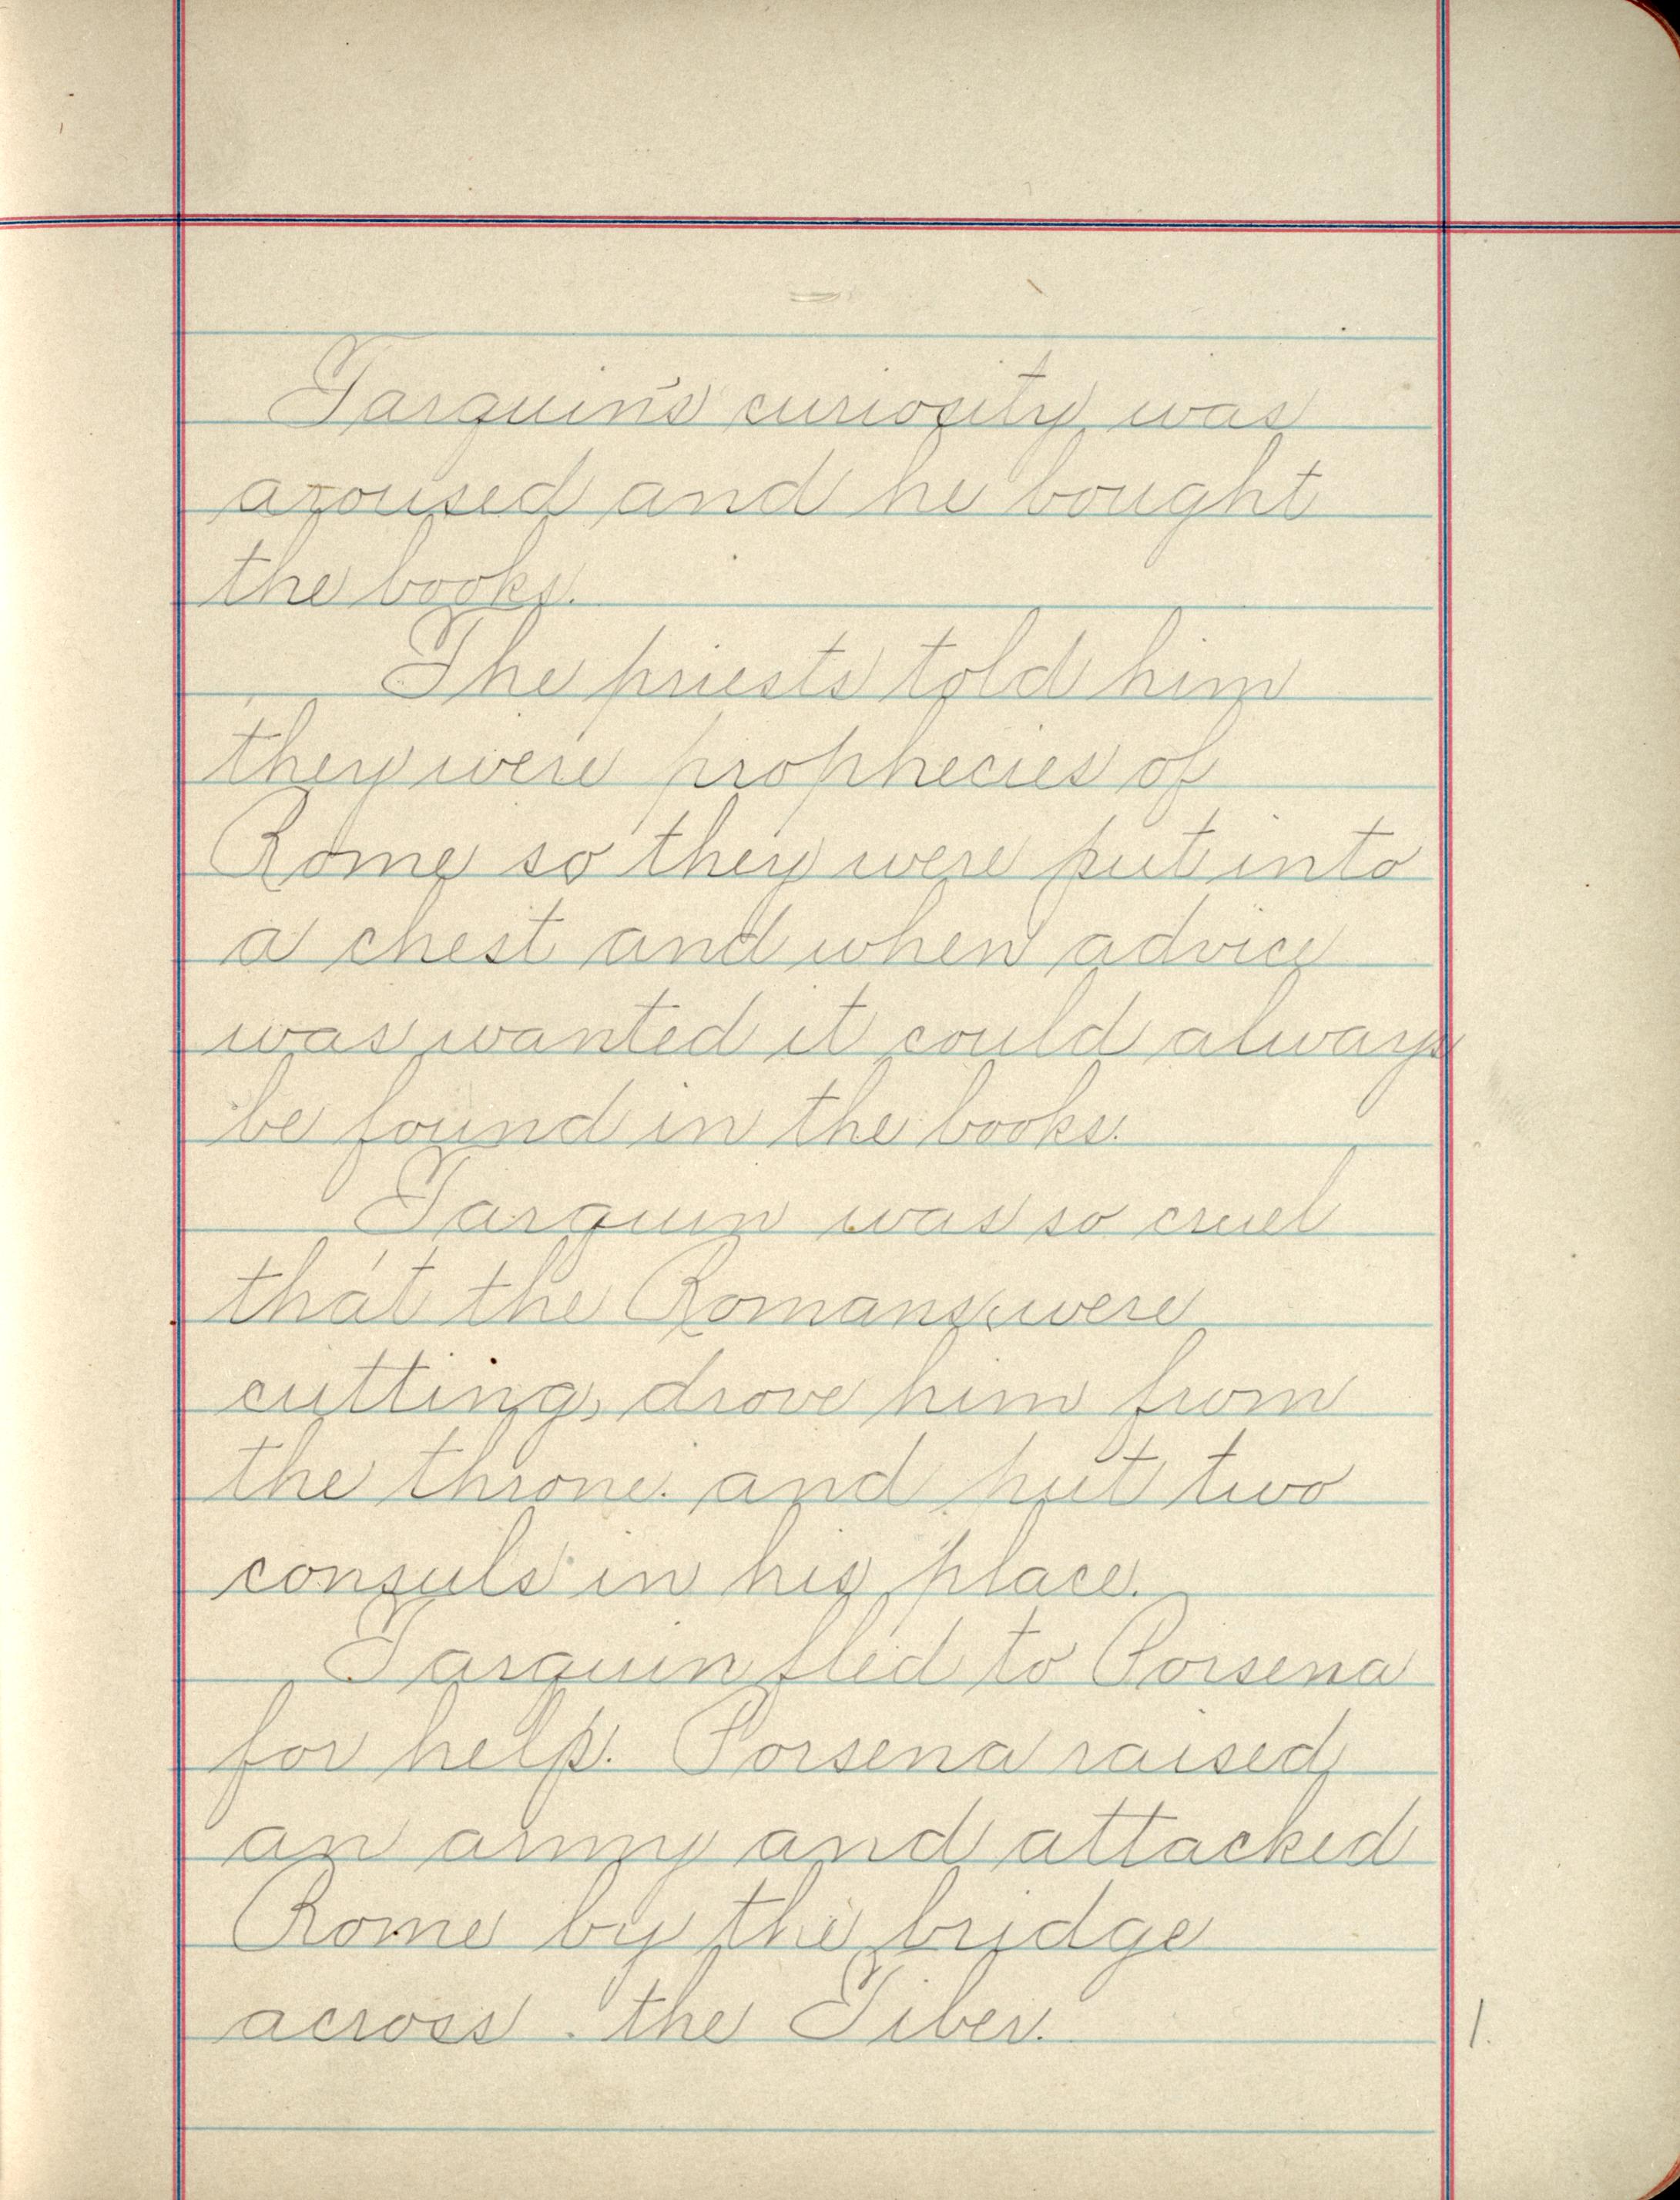 Tarquin's curiosity was
aroused and he bought
the books.
The priests told him
they were prophecies of
Rome so they were put into
a chest and when advice
was wanted it could always
be found in the books.
Tarquin was so cruel
that the Romans were
cutting, drove him from
the throne. and put two
consuls in his place.
Tarquin fled to Porsena
for help. Porsena raised
an army and attacked
Rome by the bridge
across the Tiber.
1.